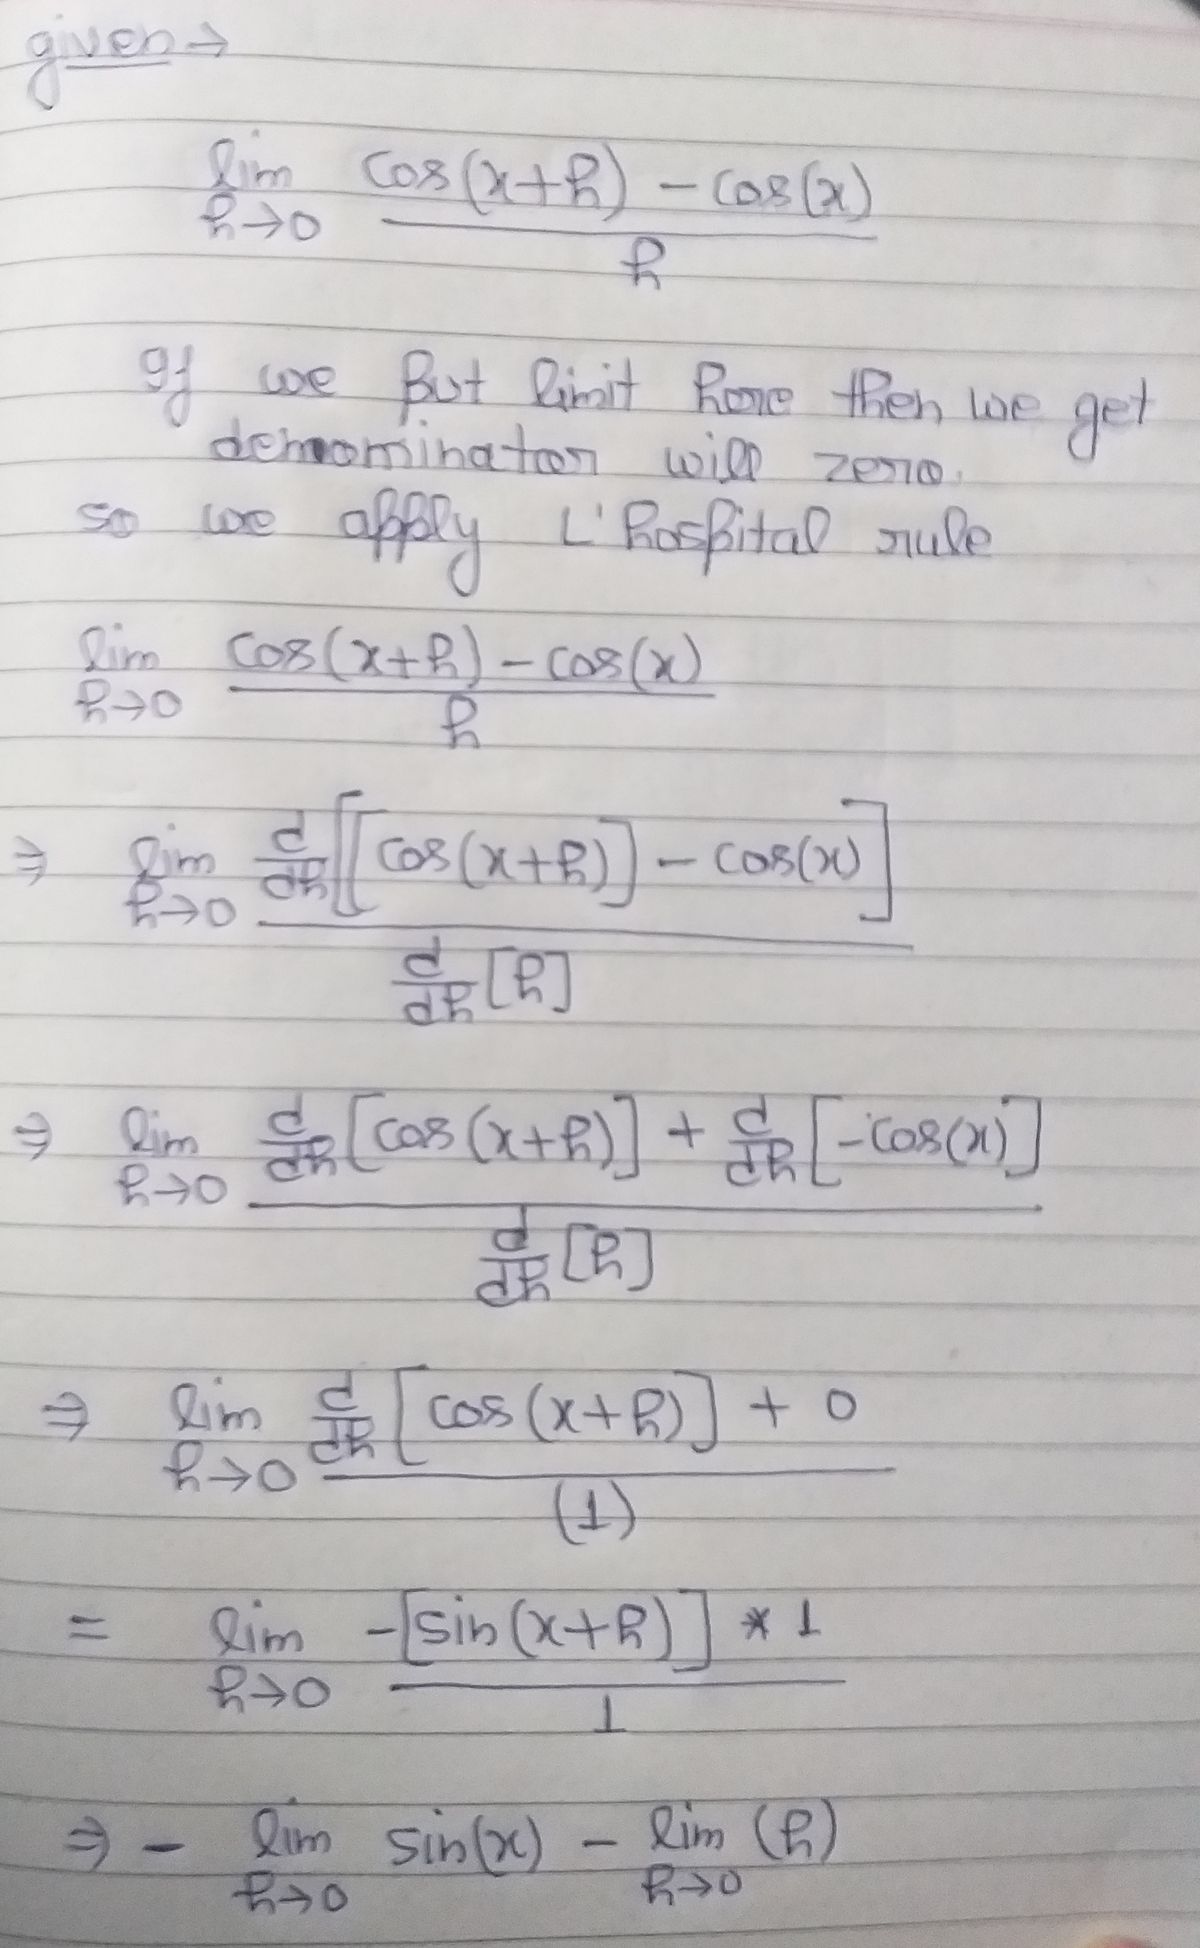 given →
lim h→0 cos(x+h) - cos(x) / h
If we put limit here then we get
denominator will zero.
so we apply L'hospital rule
lim h→0 cos(x+h) - cos(x) / h
⇒ lim h→0 d/dh [[cos(x+h)] - cos(x)] / d/dh [h]
⇒ lim h→0 d/dh [cos(x+h)] + d/dh [-cos(x)] / d/dh [h]
⇒ lim h→0 d/dh [cos(x+h)] + 0 / (1)
= lim h→0 -[sin(x+h)] * 1 / 1
⇒ - lim h→0 sin(x) - lim h→0 (h)